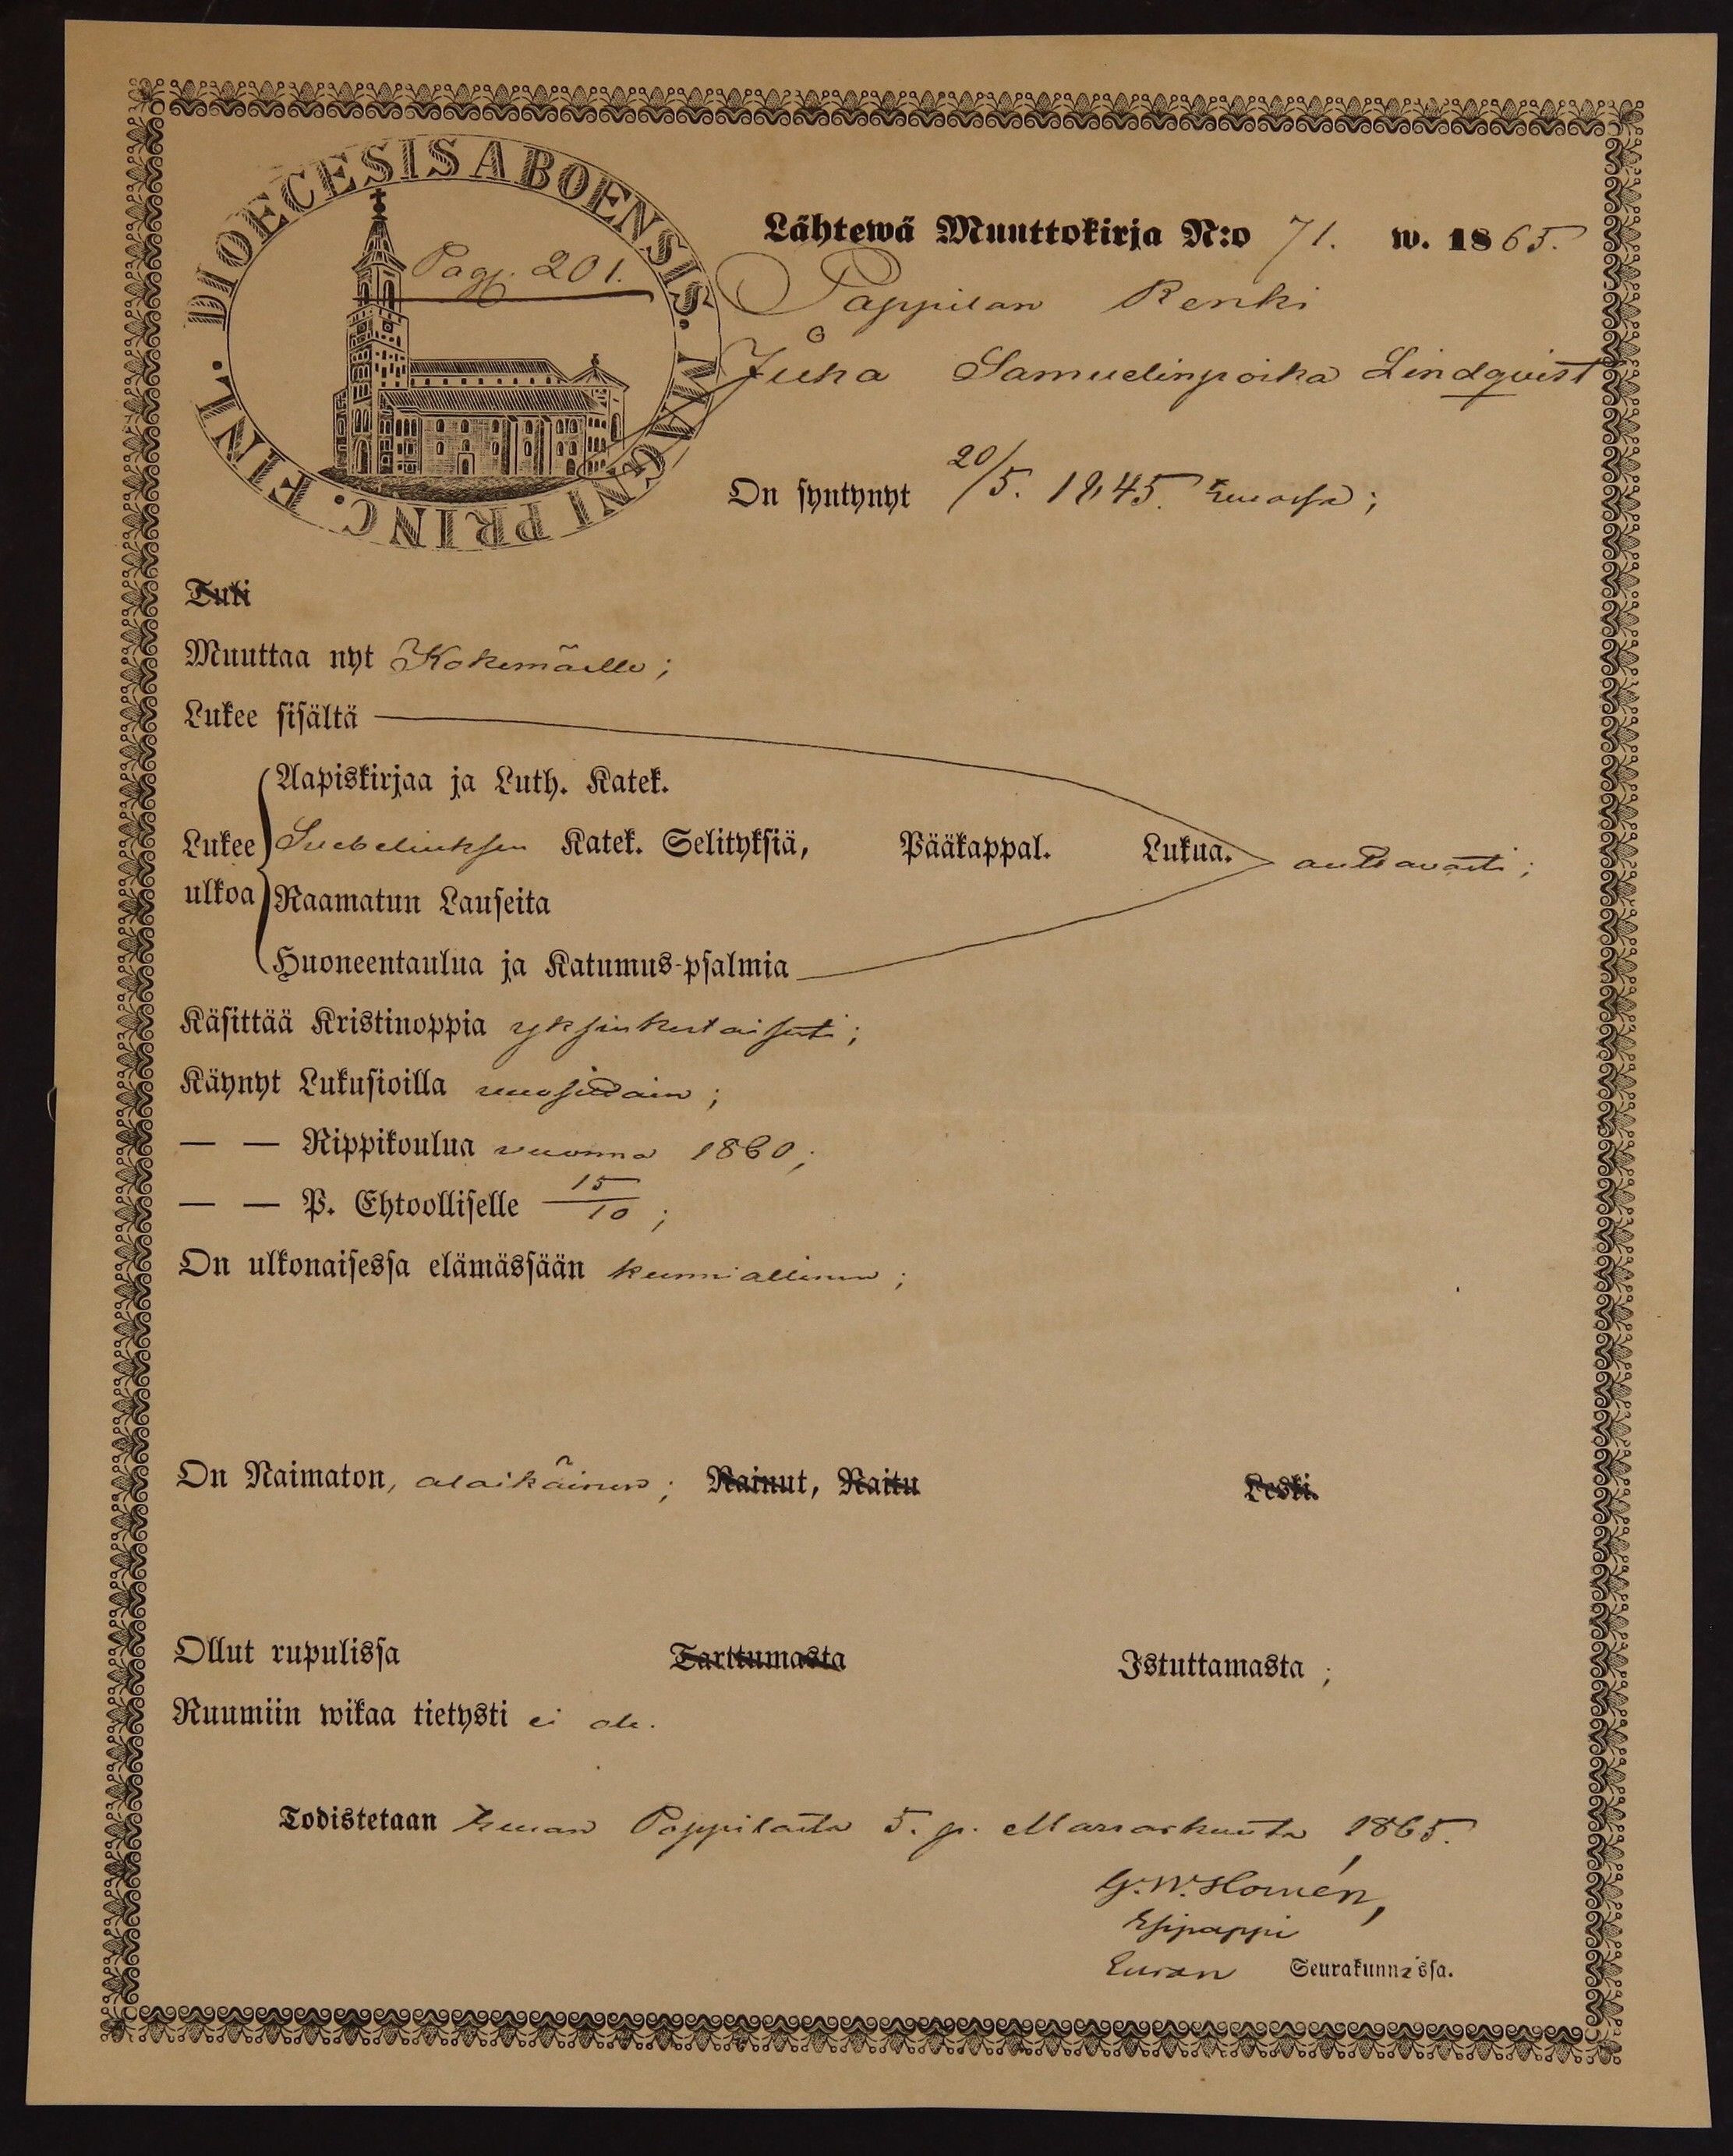 DIOECESIS ABOENSIS. MAGNI PRINC. FINL.
Pag. 201.
Lähtewä Muuttokirja N:o 71. w. 1865.
Pappilan Renki
Juha Samuelinpoika Lindqvist
On syntynyt 20/5. 1845. Eurassa;
Tuli
Muuttaa nyt Kokemäelle;
Lukee sisältä
Aapiskirjaa ja Luth. Katek.
Lukee ulkoa
Svebeliuksen Katek. Selityksiä, Pääkappal. Lukua. auttavasti;
Raamatun Lauseita
Huoneentaulua ja Katumus-psalmia
Käsittää Kristinoppia yksinkertaisesti;
Käynyt Lukusioilla vuosittain;
— — Rippikoulua vuonna 1860;
— — P. Ehtoolliselle 15/10;
On ulkonaisessa elämässään kunniallinen;
On Naimaton, alaikäinen; Nainut, Naitu Leski.
Ollut rupulissa Tarttumasta Istuttamasta;
Ruumiin wikaa tietysti ei ole.
Todistetaan Euran Pappilasta 5. p. Marraskuuta 1865.
G. W. Homén,
Esipappi
Euran Seurakunnassa.